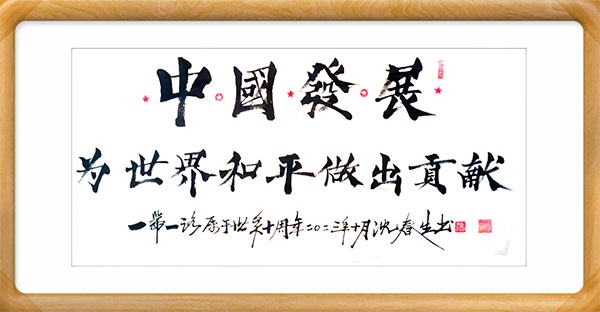 中國發展
为世界和平做出貢献
一帶一路属于世界十周年二〇二三年十月沈春生书